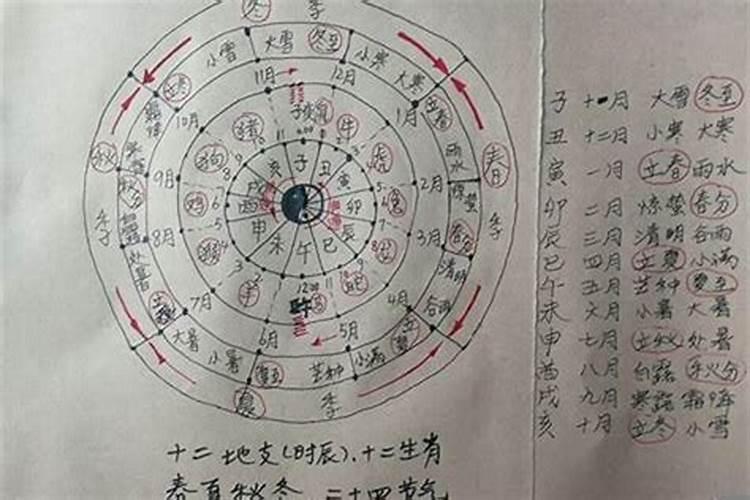 冬 季
小雪 大雪 冬至 小寒 大寒
立冬 立春
11月 12月
10月 1月
霜降 雨水
秋 季
春 季
寒露 惊蛰
秋分 春分
白露 清明
处暑 谷雨
立秋 立夏
大暑 小暑 夏至 芒种 小满
夏 季
9月 2月
8月 3月
7月 4月
6月 5月
猪 鼠 牛
狗 虎
鸡 兔
猴 龙
羊 马 蛇
亥 子 丑
戌 寅
酉 卯
申 辰
未 午 巳
子 十一月 大雪 冬至
丑 十二月 小寒 大寒
寅 一月 立春 雨水
卯 二月 惊蛰 春分
辰 三月 清明 谷雨
巳 四月 立夏 小满
午 五月 芒种 夏至
未 六月 小暑 大暑
申 七月 立秋 处暑
酉 八月 白露 秋分
戌 九月 寒露 霜降
亥 十月 立冬 小雪
十二地支(时辰)、十二生肖
春夏秋冬 二十四节气